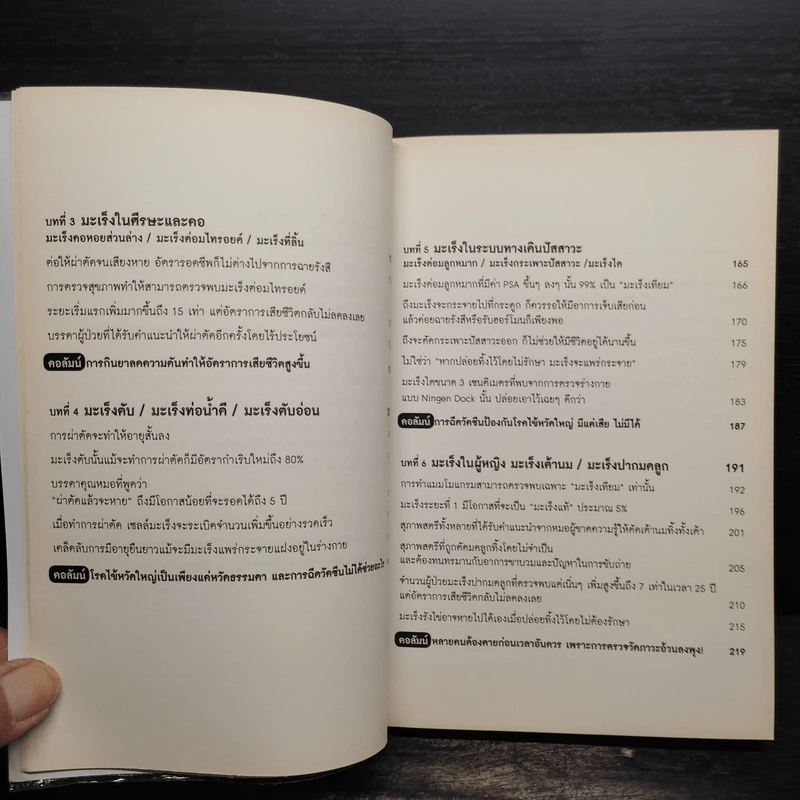 บทที่ 3 มะเร็งในศีรษะและคอ
มะเร็งคอหอยส่วนล่าง / มะเร็งต่อมไทรอยด์ / มะเร็งที่ลิ้น
ต่อให้ผ่าตัดจนเสียงหาย อัตรารอดชีพก็ไม่ต่างไปจากการฉายรังสี
การตรวจสุขภาพทำให้สามารถตรวจพบมะเร็งต่อมไทรอยด์
ระยะเริ่มแรกเพิ่มมากขึ้นถึง 15 เท่า แต่อัตราการเสียชีวิตกลับไม่ลดลงเลย
บรรดาผู้ป่วยที่ได้รับคำแนะนำให้ผ่าตัดอีกครั้งโดยไร้ประโยชน์
คอลัมน์ การกินยาลดความดันทำให้อัตราการเสียชีวิตสูงขึ้น
บทที่ 4 มะเร็งตับ / มะเร็งท่อน้ำดี / มะเร็งตับอ่อน
การผ่าตัดจะทำให้อายุสั้นลง
มะเร็งตับนั้นแม้จะทำการผ่าตัดก็มีอัตรากำเริบใหม่ถึง 80%
บรรดาคุณหมอที่พูดว่า
"ผ่าตัดแล้วจะหาย" ถึงมีโอกาสน้อยที่จะรอดได้ถึง 5 ปี
เมื่อทำการผ่าตัด เซลล์มะเร็งจะระเบิดจำนวนเพิ่มขึ้นอย่างรวดเร็ว
เคล็ดลับการมีอายุยืนยาวแม้จะมีมะเร็งแพร่กระจายแฝงอยู่ในร่างกาย
คอลัมน์ โรคไข้หวัดใหญ่เป็นเพียงแค่หวัดธรรมดา และการฉีดวัคซีนไม่ได้ช่วยอะไร
บทที่ 5 มะเร็งในระบบทางเดินปัสสาวะ
มะเร็งต่อมลูกหมาก / มะเร็งกระเพาะปัสสาวะ /มะเร็งไต 165
มะเร็งต่อมลูกหมากที่มีค่า PSA ขึ้นๆ ลงๆ นั้น 99% เป็น "มะเร็งเทียม" 166
ถึงมะเร็งจะกระจายไปที่กระดูก ก็ควรรอให้มีอาการเจ็บเสียก่อน
แล้วค่อยฉายรังสีหรือรับฮอร์โมนก็เพียงพอ 170
ถึงจะตัดกระเพาะปัสสาวะออก ก็ไม่ช่วยให้มีชีวิตอยู่ได้นานขึ้น 175
ไม่ใช่ว่า "หากปล่อยทิ้งไว้โดยไม่รักษา มะเร็งจะแพร่กระจาย" 179
มะเร็งไตขนาด 3 เซนติเมตรที่พบจากการตรวจร่างกาย
แบบ Ningen Dock นั้น ปล่อยเอาไว้เฉยๆ ดีกว่า 183
คอลัมน์ การฉีดวัคซีนป้องกันโรคไข้หวัดใหญ่ มีแต่เสีย ไม่มีได้ 187
บทที่ 6 มะเร็งในผู้หญิง มะเร็งเต้านม / มะเร็งปากมดลูก 191
การทำแมมโมแกรมสามารถตรวจพบเฉพาะ "มะเร็งเทียม" เท่านั้น 192
มะเร็งระยะที่ 1 มีโอกาสที่จะเป็น "มะเร็งแท้" ประมาณ 5% 196
สุภาพสตรีทั้งหลายที่ได้รับคำแนะนำจากหมอผู้ขาดความรู้ให้ตัดเต้านมทิ้งทั้งเต้า 201
สุภาพสตรีที่ถูกตัดมดลูกทิ้งโดยไม่จำเป็น
และต้องทนทรมานกับอาการขาบวมและปัญหาในการขับถ่าย 205
จำนวนผู้ป่วยมะเร็งปากมดลูกที่ตรวจพบแต่เนิ่นๆ เพิ่มสูงขึ้นถึง 7 เท่าในเวลา 25 ปี
แต่อัตราการเสียชีวิตกลับไม่ลดลงเลย 210
มะเร็งรังไข่อาจหายไปได้เองเมื่อปล่อยทิ้งไว้โดยไม่ต้องรักษา 215
คอลัมน์ หลายคนต้องตายก่อนเวลาอันควร เพราะการตรวจวัดภาวะอ้วนลงพุง! 219